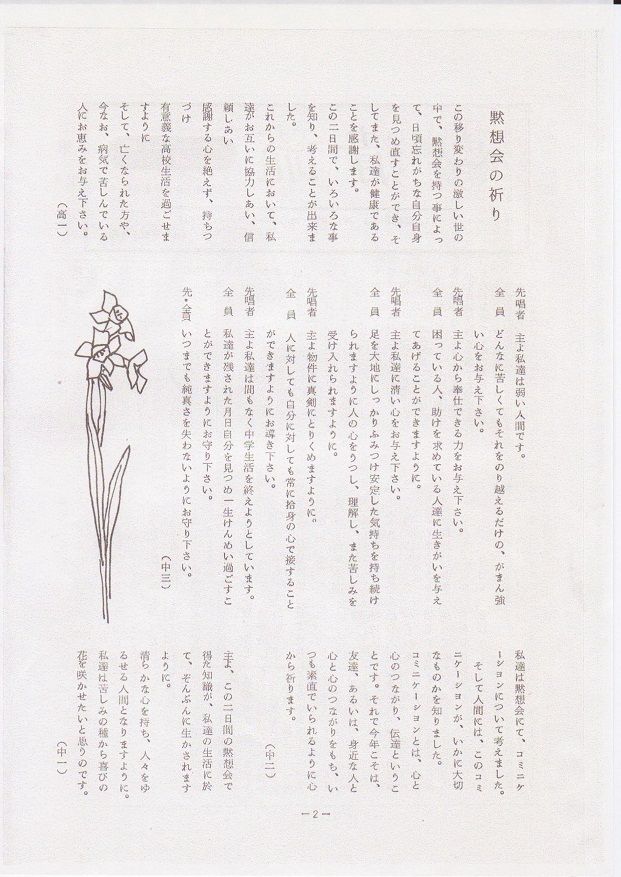 黙想会の祈り
この移り変わりの激しい世の
中で、黙想会を持つ事によっ
て、日頃忘れがちな自分自身
を見つめ直すことができ、そ
してまた、私達が健康である
ことを感謝します。
この二日間で、いろいろな事
を知り、考えることが出来ま
した。
これからの生活において、私
達がお互いに協力しあい、信
頼しあい
感謝する心を絶えず、持ちつ
づけ
有意義な高校生活を過ごせま
すように
そして、亡くなられた方や、
今なお、病気で苦しんでいる
人にお恵みをお与え下さい。
(高一)
先唱者 主よ私達は弱い人間です。
全員 どんなに苦しくてもそれをのり越えるだけの、がまん強
い心をお与え下さい。
先唱者 主よ心から奉仕できる力をお与え下さい。
全員 困っている人、助けを求めている人達に生きがいを与え
てあげることができますように。
先唱者 主よ私達に清い心をお与え下さい。
全員 足を大地にしっかりふみつけ安定した気持ちを持ち続け
られますように人の心をうつし、理解し、また苦しみを
受け入れられますように。
先唱者 主よ物件に真剣にとりくめますように。
全員 人に対しても自分に対しても常に捨身の心で接すること
ができますようにお導き下さい。
先唱者 主よ私達は間もなく中学生活を終えようとしています。
全員 私達が残された月日自分を見つめ一生けんめい過ごすこ
とができますようにお守り下さい。
先・全員 いつまでも純真さを失わないようにお守り下さい。
(中三)
私達は黙想会にて、コミニケ
ーションについて考えました。
そして人間には、このコミ
ニケーションが、いかに大切
なものかを知りました。
コミニケーションとは、心と
心のつながり、伝達というこ
とです。それで今年こそは、
友達、あるいは、身近な人と
心と心のつながりをもち、い
つも素直でいられるように心
から祈ります。
(中二)
主よ、この二日間の黙想会で
得た知識が、私達の生活に於
て、ぞんぶんに生かされます
ように。
清らかな心を持ち、人々をゆ
るせる人間となりますように。
私達は苦しみの種から喜びの
花を咲かせたいと思うのです。
(中一)
―2―